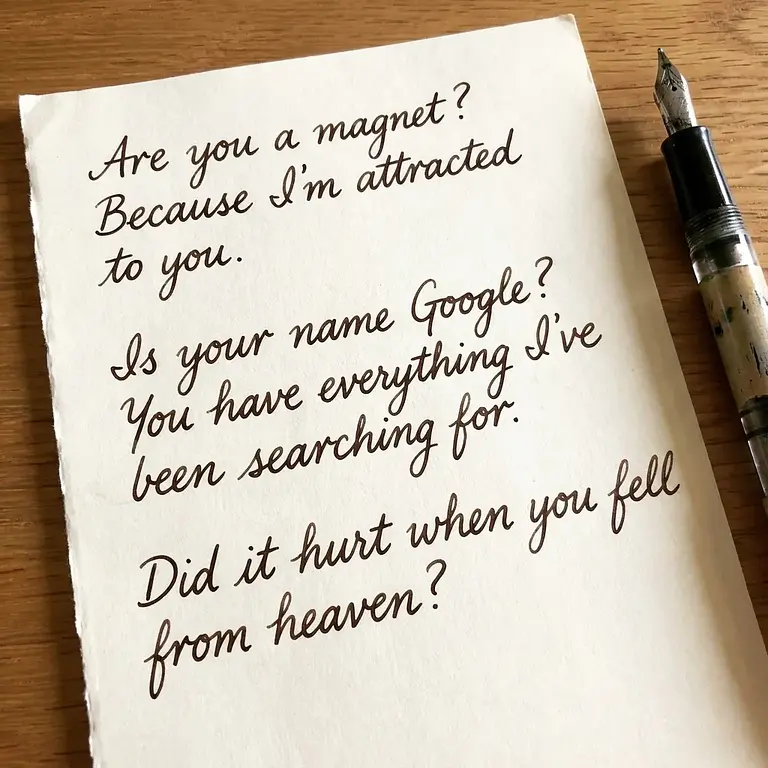 Are you a magnet?
Because I'm attracted
to you.
Is your name Google?
You have everything I've
been searching for.
Did it hurt when you fell
from heaven?